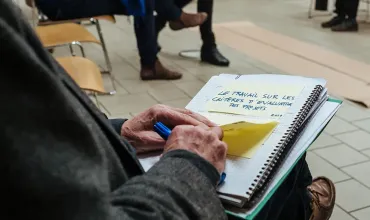 LE TRAVAIL SUR LES
CRITÈRES D'ÉVALUATION
DES PROJETS